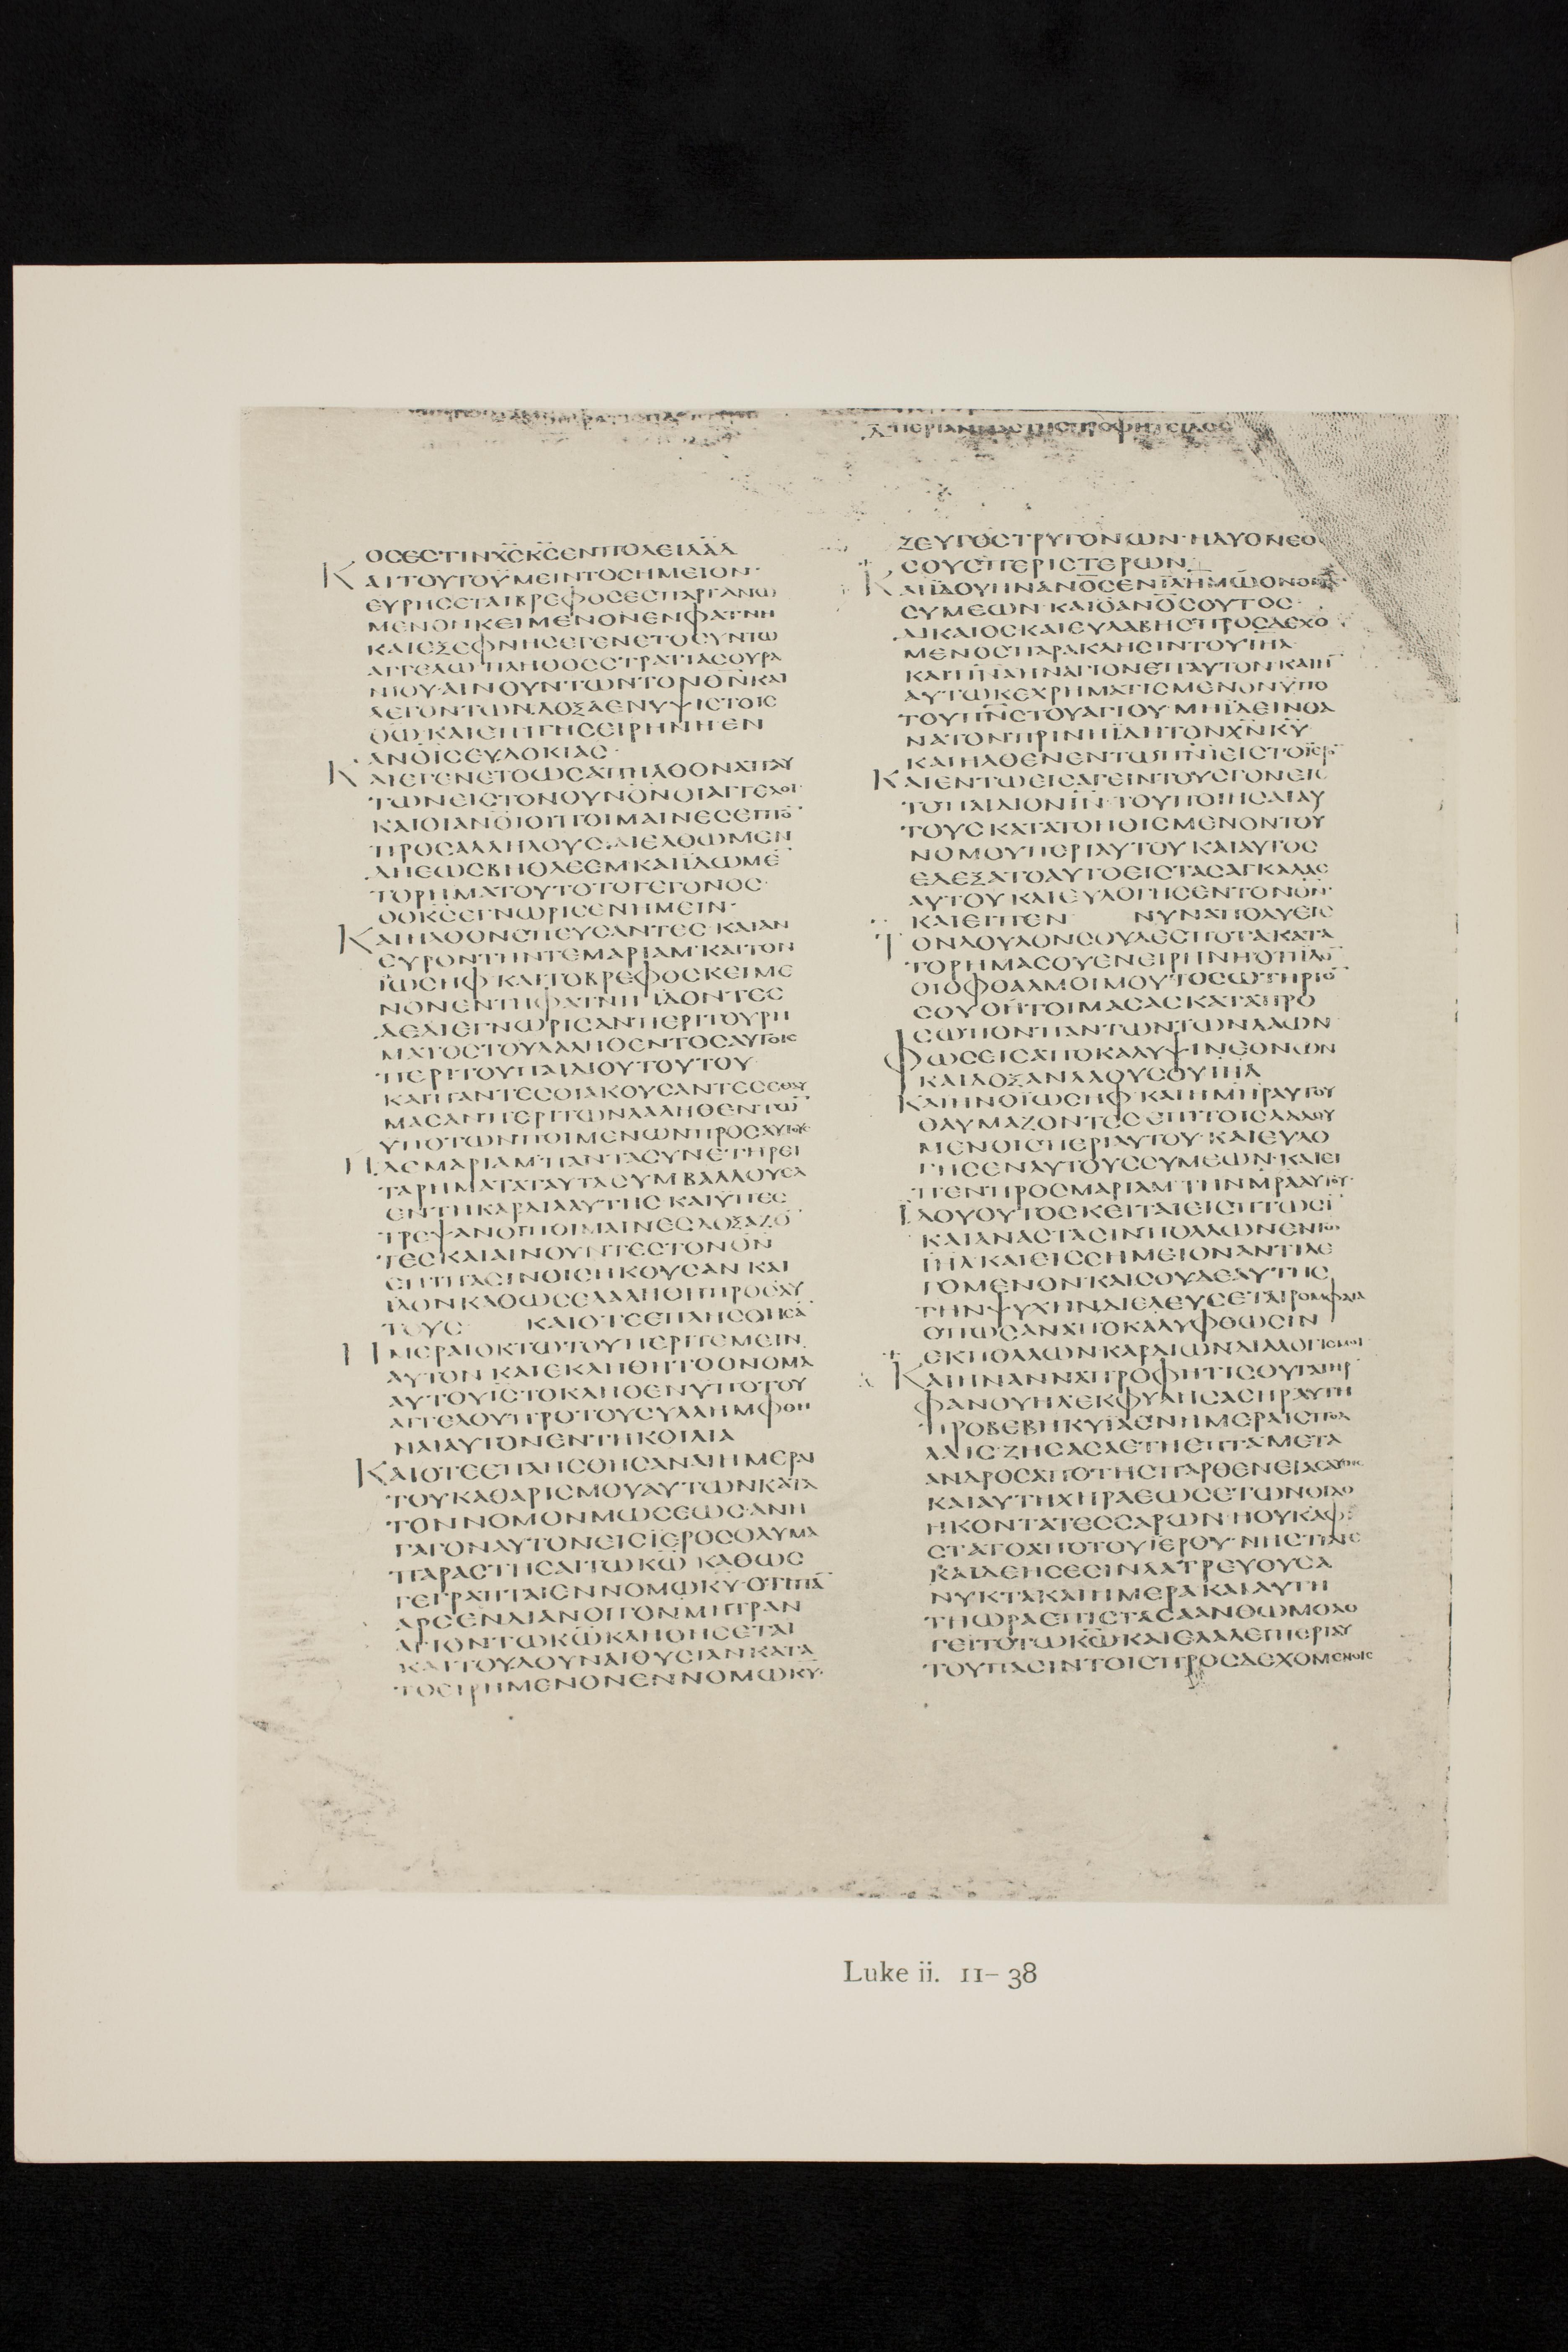 ΟϹΕϹΤΙΝΧ̅Ϲ̅Κ̅Ϲ̅ΕΝΠΟΛΕΙΔΑΔ
ΚΑΙΤΟΥΤΟΫΜΕΙΝΤΟϹΗΜΕΙΟΝ·
ΕΥΡΗϹΕΤΑΙΒΡΕΦΟϹΕϹΠΑΡΓΑΝΩ
ΜΕΝΟΝΚΕΙΜΕΝΟΝΕΝΦΑΤΝΗ
ΚΑΙΕΞΕΦΝΗϹΕΓΕΝΕΤΟϹΥΝΤΩ
ΑΓΓΕΛΩΠΛΗΘΟϹϹΤΡΑΤΙΑϹΟΥΡΑ
ΝΙΟΥ·ΑΙΝΟΥΝΤΩΝΤΟΝΘ̅Ν̅ΚΑΙ
ΛΕΓΟΝΤΩΝΔΟΞΑΕΝΥΨΙϹΤΟΙϹ
Θ̅Ω̅ΚΑΙΕΠΙΓΗϹΕΙΡΗΝΗΕΝ
ΑΝΟΙϹΕΥΔΟΚΙΑϹ·
ΚΑΙΕΓΕΝΕΤΟΩϹΑΠΗΛΘΟΝΑΠΑΥ
ΤΩΝΕΙϹΤΟΝΟΥΝΟΝΟΙΑΓΓΕΛΟΙ·
ΚΑΙΟΙΑΝΟΙΟΙΠΟΙΜΑΙΝΕϹΕΙΠΟ̅
ΠΡΟϹΑΛΛΗΛΟΥϹ·ΔΙΕΛΘΩΜΕΝ
ΔΗΕΩϹΒΗΘΛΕΕΜΚΑΙΪΔΩΜΕ̅
ΤΟΡΗΜΑΤΟΥΤΟΤΟΓΕΓΟΝΟϹ·
ΟΟΚ̅Ϲ̅ΕΓΝΩΡΙϹΕΝΗΜΕΙΝ·
ΚΑΙΗΛΘΟΝϹΠΕΥϹΑΝΤΕϹ·ΚΑΙΑΝ
ΕΥΡΟΝΤΗΝΤΕΜΑΡΙΑΜ·ΚΑΙΤΟΝ
ΪΩϹΗΦ·ΚΑΙΤΟΒΡΕΦΟϹΚΕΙΜΕ
ΝΟΝΕΝΤΗΦΑΤΝΗΪΔΟΝΤΕϹ
ΔΕΔΙΕΓΝΩΡΙϹΑΝΠΕΡΙΤΟΥΡΗ
ΜΑΤΟϹΤΟΥΛΑΛΗΘΕΝΤΟϹΑΥΤΟΙϹ
ΠΕΡΙΤΟΥΠΑΙΔΙΟΥΤΟΥΤΟΥ·
ΚΑΙΠΑΝΤΕϹΟΙΑΚΟΥϹΑΝΤΕϹΕΘΑΥ
ΜΑϹΑΝΠΕΡΙΤΩΝΛΑΛΗΘΕΝΤΩ̅
ΥΠΟΤΩΝΠΟΙΜΕΝΩΝΠΡΟϹΑΥΤΟΥϹ
ΗΔΕΜΑΡΙΑΜΠΑΝΤΑϹΥΝΕΤΗΡΕΙ
ΤΑΡΗΜΑΤΑΤΑΥΤΑϹΥΜΒΑΛΛΟΥϹΑ
ΕΝΤΗΚΑΡΔΙΑΑΥΤΗϹ·ΚΑΙΫΠΕϹ
ΤΡΕΨΑΝΟΙΠΟΙΜΑΙΝΕϹΔΟΞΑΖΟ̅
ΤΕϹΚΑΙΑΙΝΟΥΝΤΕϹΤΟΝΘ̅Ν̅
ΕΠΙΠΑϹΙΝΟΙϹΗΚΟΥϹΑΝΚΑΙ
ΪΔΟΝΚΑΘΩϹΕΛΑΛΗΘΗΠΡΟϹΑΥ
ΤΟΥϹ ΚΑΙΟΤΕΕΠΛΗϹΘΗϹΑ̅
ΗΜΕΡΑΙΟΚΤΩΤΟΥΠΕΡΙΤΕΜΕΙΝ
ΑΥΤΟΝ·ΚΑΙΕΚΛΗΘΗΤΟΟΝΟΜΑ
ΑΥΤΟΥΙ̅Ϲ̅ΤΟΚΛΗΘΕΝΫΠΟΤΟΥ
ΑΓΓΕΛΟΥΠΡΟΤΟΥϹΥΛΛΗΜΦΘΗ
ΝΑΙΑΥΤΟΝΕΝΤΗΚΟΙΛΙΑ
ΚΑΙΟΤΕΕΠΛΗϹΘΗϹΑΝΑΙΗΜΕΡΑΙ
ΤΟΥΚΑΘΑΡΙϹΜΟΥΑΥΤΩΝΚΑΤΑ
ΤΟΝΝΟΜΟΝΜΩϹΕΩϹ·ΑΝΗ
ΓΑΓΟΝΑΥΤΟΝΕΙϹΪΕΡΟϹΟΛΥΜΑ
ΠΑΡΑϹΤΗϹΑΙΤΩΚ̅Ω̅ΚΑΘΩϹ
ΓΕΓΡΑΠΤΑΙΕΝΝΟΜΩΚ̅Υ̅·ΟΤΙΠΑ̅
ΑΡϹΕΝΔΙΑΝΟΙΓΟΝΜΗΤΡΑΝ
ΑΓΙΟΝΤΩΚ̅Ω̅ΚΛΗΘΗϹΕΤΑΙ
ΚΑΙΤΟΥΔΟΥΝΑΙΘΥϹΙΑΝΚΑΤΑ
ΤΟΕΙΡΗΜΕΝΟΝΕΝΝΟΜΩΚ̅Υ̅·
ΖΕΥΓΟϹΤΡΥΓΟΝΩΝ·ΗΔΥΟΝΕΟ
ϹΟΥϹΠΕΡΙϹΤΕΡΩΝ
ΚΑΙΪΔΟΥΗΝΑΝΟϹΕΝΪΛΗΜΩΟΝΟΜΑ
ϹΥΜΕΩΝ·ΚΑΙΟΑΝΟϹΟΥΤΟϹ·
ΔΙΚΑΙΟϹΚΑΙΕΥΛΑΒΗϹΠΡΟϹΔΕΧΟ
ΜΕΝΟϹΠΑΡΑΚΛΗϹΙΝΤΟΥΙΗΛ·
ΚΑΙΠ̅Ν̅Α̅ΗΝΑΓΙΟΝΕΠΑΥΤΟΝ·ΚΑΙΗ̅
ΑΥΤΩΚΕΧΡΗΜΑΤΙϹΜΕΝΟΝΫΠΟ
ΤΟΥΠ̅Ν̅Ϲ̅ΤΟΥΑΓΙΟΥ·ΜΗΪΔΕΙΝΘΑ
ΝΑΤΟΝΠΡΙΝΗΪΔΗΤΟΝΧ̅Ν̅Κ̅Υ̅
ΚΑΙΗΛΘΕΝΕΝΤΩΠ̅Ν̅Ι̅ΕΙϹΤΟΪΕΡΟ̅
ΚΑΙΕΝΤΩΕΙϹΑΓΕΙΝΤΟΥϹΓΟΝΕΙϹ
ΤΟΠΑΙΔΙΟΝΙ̅Ν̅·ΤΟΥΠΟΙΗϹΑΙΑΥ
ΤΟΥϹΚΑΤΑΤΟΗΘΙϹΜΕΝΟΝΤΟΥ
ΝΟΜΟΥΠΕΡΙΑΥΤΟΥΚΑΙΑΥΤΟϹ
ΕΔΕΞΑΤΟΑΥΤΟΕΙϹΤΑϹΑΓΚΑΛΑϹ
ΑΥΤΟΥΚΑΙΕΥΛΟΓΗϹΕΝΤΟΝΘ̅Ν̅·
ΚΑΙΕΙΠΕΝ ΝΥΝΑΠΟΛΥΕΙϹ
ΤΟΝΔΟΥΛΟΝϹΟΥΔΕϹΠΟΤΑΚΑΤΑ
ΤΟΡΗΜΑϹΟΥΕΝΕΙΡΗΝΗΟΤΙΪΔΟ̅
ΟΙΟΦΘΑΛΜΟΙΜΟΥΤΟϹΩΤΗΡΙΟ̅
ϹΟΥΟΗΤΟΙΜΑϹΑϹΚΑΤΑΠΡΟ
ϹΩΠΟΝΠΑΝΤΩΝΤΩΝΛΑΩΝ
ΦΩϹΕΙϹΑΠΟΚΑΛΥΨΙΝΕΘΝΩΝ
ΚΑΙΔΟΞΑΝΛΑΟΥϹΟΥΙΗΛ
ΚΑΙΗΝΟΪΩϹΗΦ·ΚΑΙΗΜΗΡΑΥΤΟΥ
ΘΑΥΜΑΖΟΝΤΕϹΕΠΙΤΟΙϹΛΑΛΟΥ
ΜΕΝΟΙϹΠΕΡΙΑΥΤΟΥ·ΚΑΙΕΥΛΟ
ΓΗϹΕΝΑΥΤΟΥϹϹΥΜΕΩΝ·ΚΑΙΕΙ
ΠΕΝΠΡΟϹΜΑΡΙΑΜΤΗΝΜΡΑΑΥΤΟΥ·
ΪΔΟΥΟΥΤΟϹΚΕΙΤΑΙΕΙϹΠΤΩϹΙ̅
ΚΑΙΑΝΑϹΤΑϹΙΝΠΟΛΛΩΝΕΝΤΩ
ΙΗΛΚΑΙΕΙϹϹΗΜΕΙΟΝΑΝΤΙΛΕ
ΓΟΜΕΝΟΝ·ΚΑΙϹΟΥΔΕΑΥΤΗϹ
ΤΗΝΨΥΧΗΝΔΙΕΛΕΥϹΕΤΑΙΡΟΜΦΑΙΑ
ΟΠΩϹΑΝΑΠΟΚΑΛΥΦΘΩϹΙΝ
ΕΚΠΟΛΛΩΝΚΑΡΔΙΩΝΔΙΑΛΟΓΙϹΜΟΙ
ΚΑΙΗΝΑΝΝΑΠΡΟΦΗΤΙϹΘΥΓΑΤΗΡ
ΦΑΝΟΥΗΛΕΚΦΥΛΗϹΑϹΗΡΑΥΤΗ
ΠΡΟΒΕΒΗΚΥΪΑΕΝΗΜΕΡΑΙϹΠΟΛ
ΛΑΙϹ·ΖΗϹΑϹΑΕΤΗΕΠΤΑΜΕΤΑ
ΑΝΔΡΟϹΑΠΟΤΗϹΠΑΡΘΕΝΕΙΑϹΑΥΤΗϹ
ΚΑΙΑΥΤΗΧΗΡΑΕΩϹΕΤΩΝΟΓΔΟ
ΗΚΟΝΤΑΤΕϹϹΑΡΩΝ·ΗΟΥΚΑΦΙ
ϹΤΑΤΟΑΠΟΤΟΥΪΕΡΟΥ·ΝΗϹΤΙΑΙϹ
ΚΑΙΔΕΗϹΕϹΙΝΛΑΤΡΕΥΟΥϹΑ
ΝΥΚΤΑΚΑΙΗΜΕΡΑΚΑΙΑΥΤΗ
ΤΗΩΡΑΕΠΙϹΤΑϹΑΑΝΘΩΜΟΛΟ
ΓΕΙΤΟΤΩΚ̅Ω̅ΚΑΙΕΛΑΛΕΙΠΕΡΙΑΥ
ΤΟΥΠΑϹΙΝΤΟΙϹΠΡΟϹΔΕΧΟΜΕΝΟΙϹ
Luke ii. 11–38